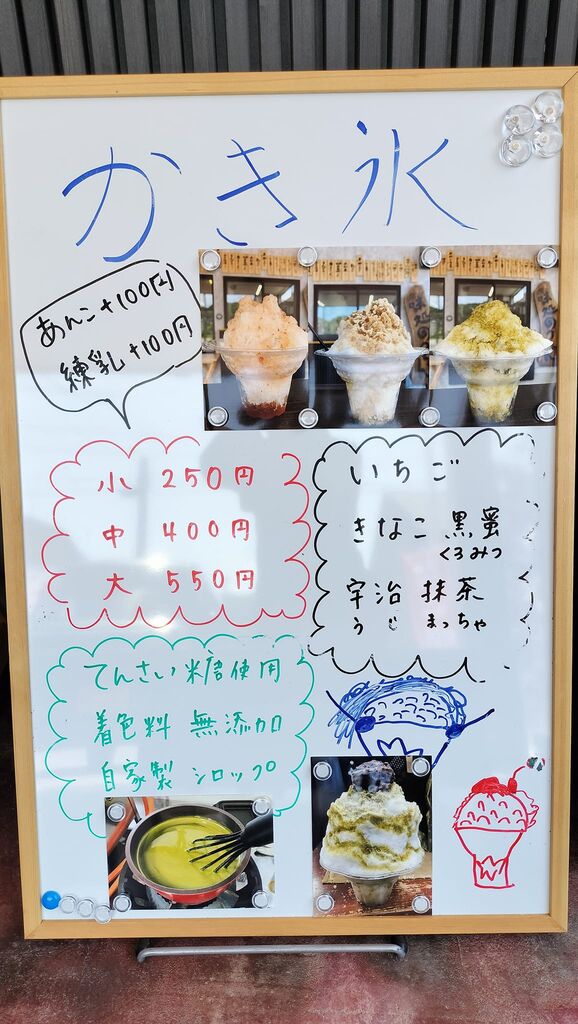 かき氷
あんこ+100円
練乳+100円
小 250円
中 400円
大 550円
いちご
きなこ黒蜜
くろみつ
宇治抹茶
うじ まっちゃ
てんさい糖使用
着色料 無添加
自家製 シロップ